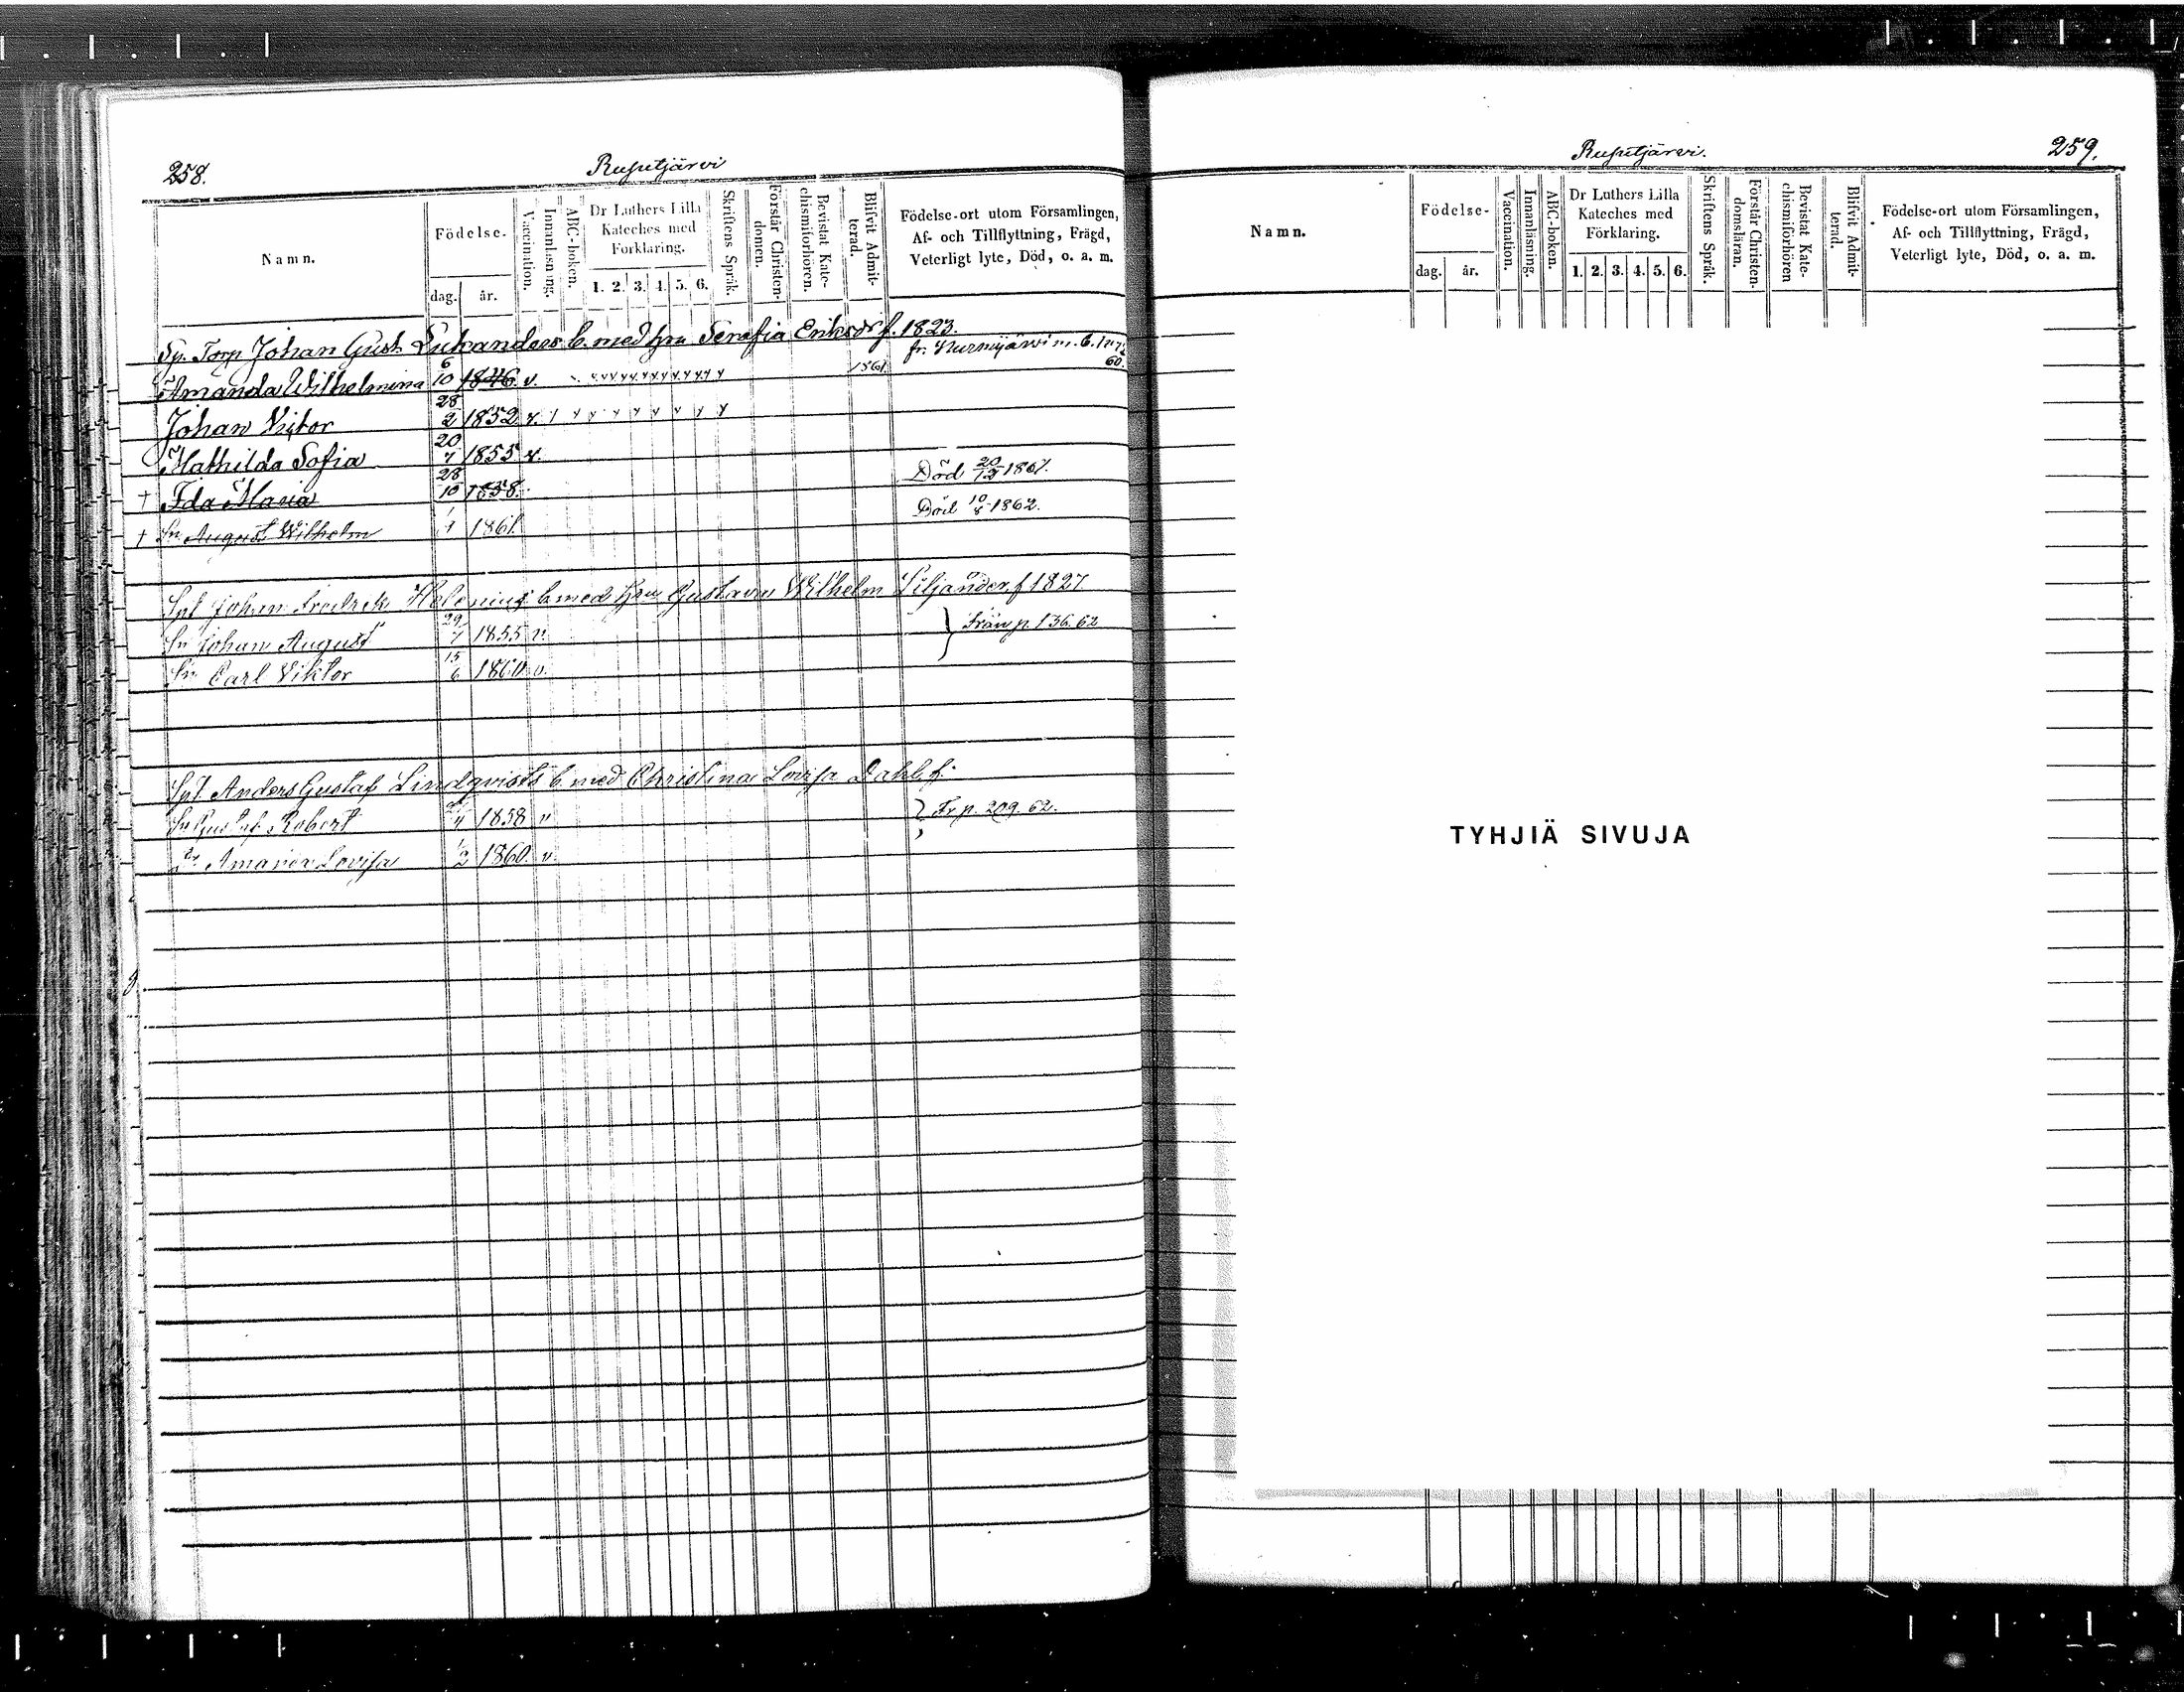 258.
Ruputjärvi
Namn.
Födelse.
dag. år.
Vaccination.
Innanläsning.
ABC-boken.
Dr Luthers Lilla Kateches med Förklaring.
1. 2. 3. 4. 5. 6.
Skriftens Språk.
Förstår Christendomen.
Bevistat Katechismiförhören.
Blifvit Admitterad.
Födelse-ort utom Församlingen,
Af- och Tillflyttning, Frägd,
Veterligt lyte, Död, o. a. m.
Torp Johan Gust. Lukanders b. med hru Serafia Eriksdr f. 1823.
Amanda Wilhelmina 6/10 1846 v. 1861 fr. Nurmijärvi 60.
Johan Viktor 28/2 1852 v.
Mathilda Sofia 20/7 1855 v.
† Ida Maria 28/10 1858. Död 20/12 1861.
† Sn August Wilhelm 1861. Död 10/8 1862.
Spt Johan Fredrik Helenius b. med hru Gustava Wilhelm Siljander f 1827
Sn Johan August 29/7 1855 v. Från p. 136. 62
Sn Carl Viktor 15/6 1860 v.
Spt Anders Gustaf Lindqvists b. med Christina Lovisa Dahl f.
Sn Gustaf Robert 1858 v Fr p. 209. 62.
Dr Amanda Lovisa 1/2 1860. v.
Ruputjärvi.
259.
Namn.
Födelse-
dag. år.
Vaccination.
Innanläsning.
ABC-boken.
Dr Luthers Lilla Kateches med Förklaring.
1. 2. 3. 4. 5. 6.
Skriftens Språk.
Förstår Christendomsläran.
Bevistat Katechismiförhören
Blifvit Admitterad.
Födelse-ort utom Församlingen,
Af- och Tillflyttning, Frägd,
Veterligt lyte, Död, o. a. m.
TYHJIÄ SIVUJA